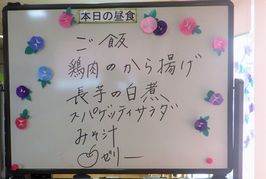 本日の昼食
ご飯
鶏肉のから揚げ
長芋の白煮
スパゲッティサラダ
みそ汁
ゼリー